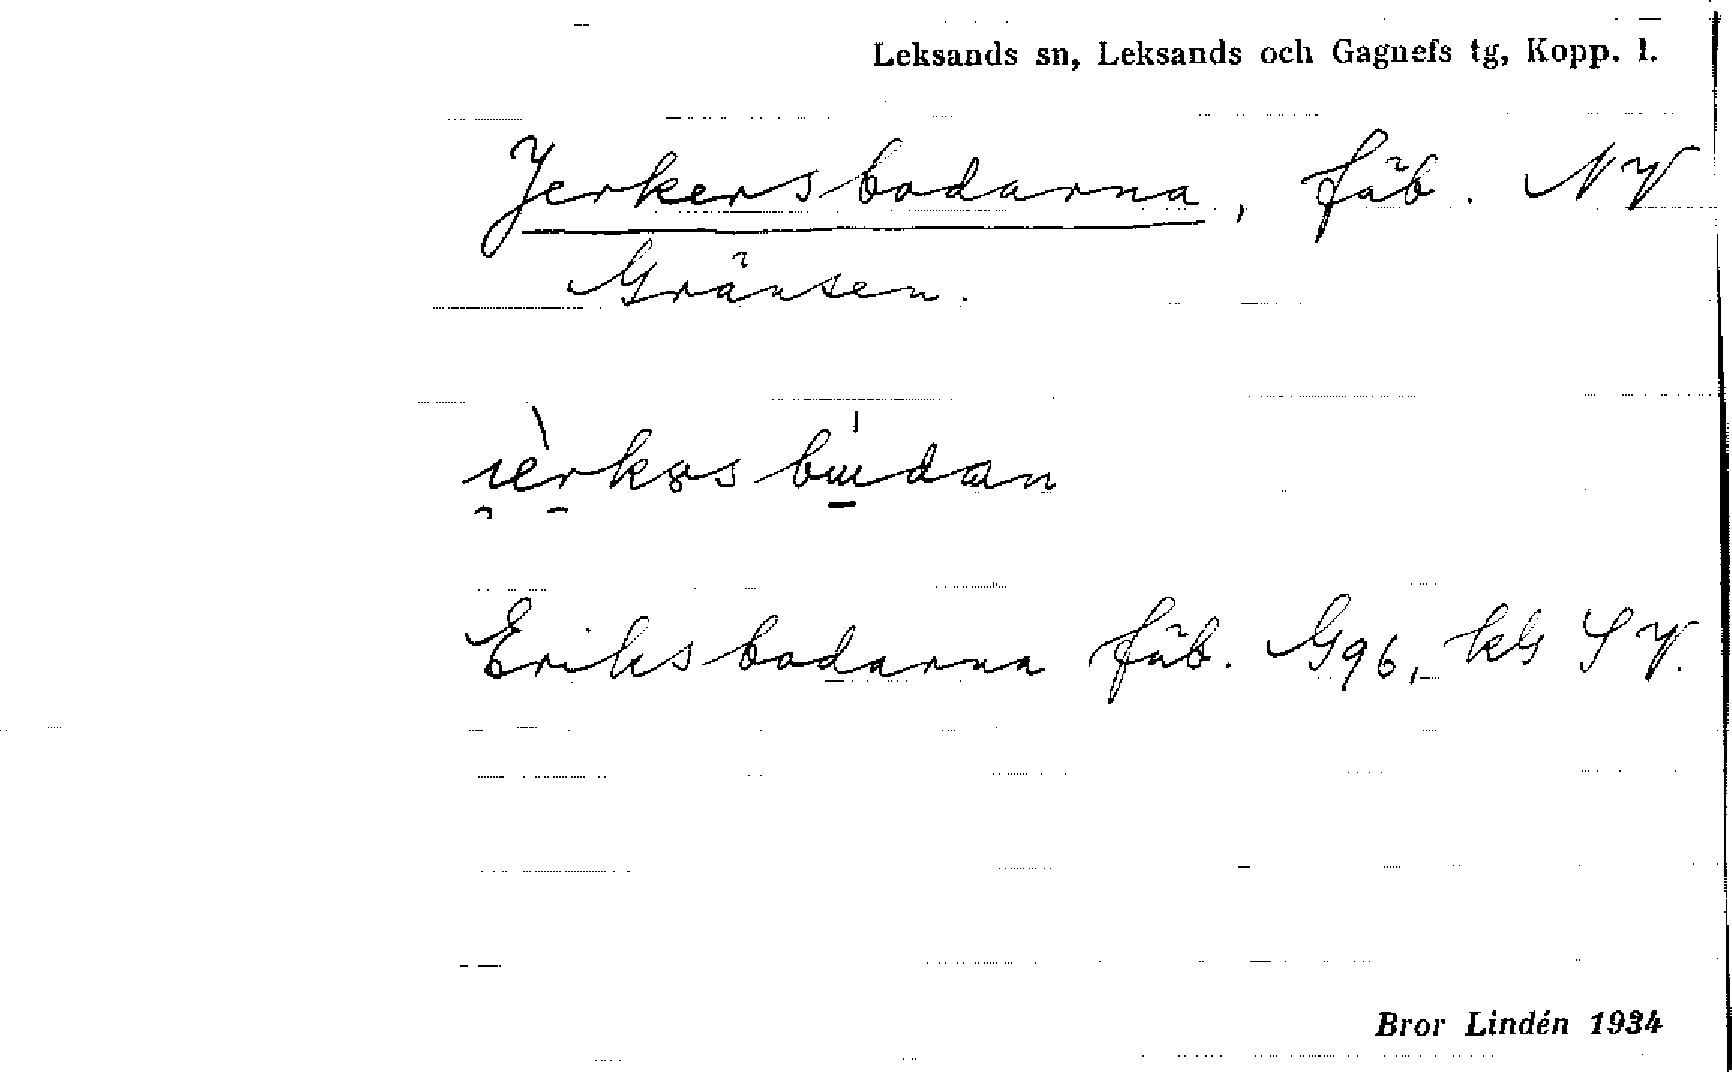 Leksands sn, Leksands och Gagnefs tg, Kopp. l.
Jerkersbodarna, fäb. NV
Gränsen.
Eriksbodarna fäb. G96, kG SV.
Bror Lindén 1934